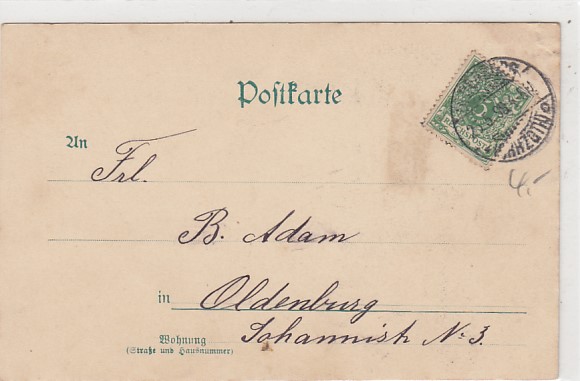 Postkarte
An Frl.
B. Adam
in Oldenburg
Wohnung Johannisth No 3.
(Straße und Hausnummer)
4,-